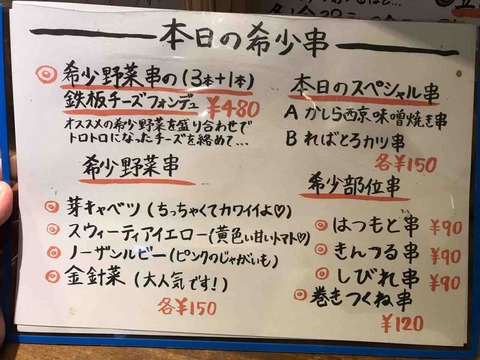 本日の希少串
希少野菜串の(3本+1本)
鉄板チーズフォンデュ ¥480
オススメの希少野菜を盛り合わせで
トロトロになったチーズを絡めて…
希少野菜串
芽キャベツ(ちっちゃくてカワイイよ♡)
スウィーティアイエロー(黄色い甘いトマト♡)
ノーザンルビー(ピンクのじゃがいも)
金針菜(大人気です!)
各¥150
本日のスペシャル串
A かしら西京味噌焼き串
B ればとろカツ串
各¥150
希少部位串
はつもと串 ¥90
きんつる串 ¥90
しびれ串 ¥90
巻きつくね串
¥120